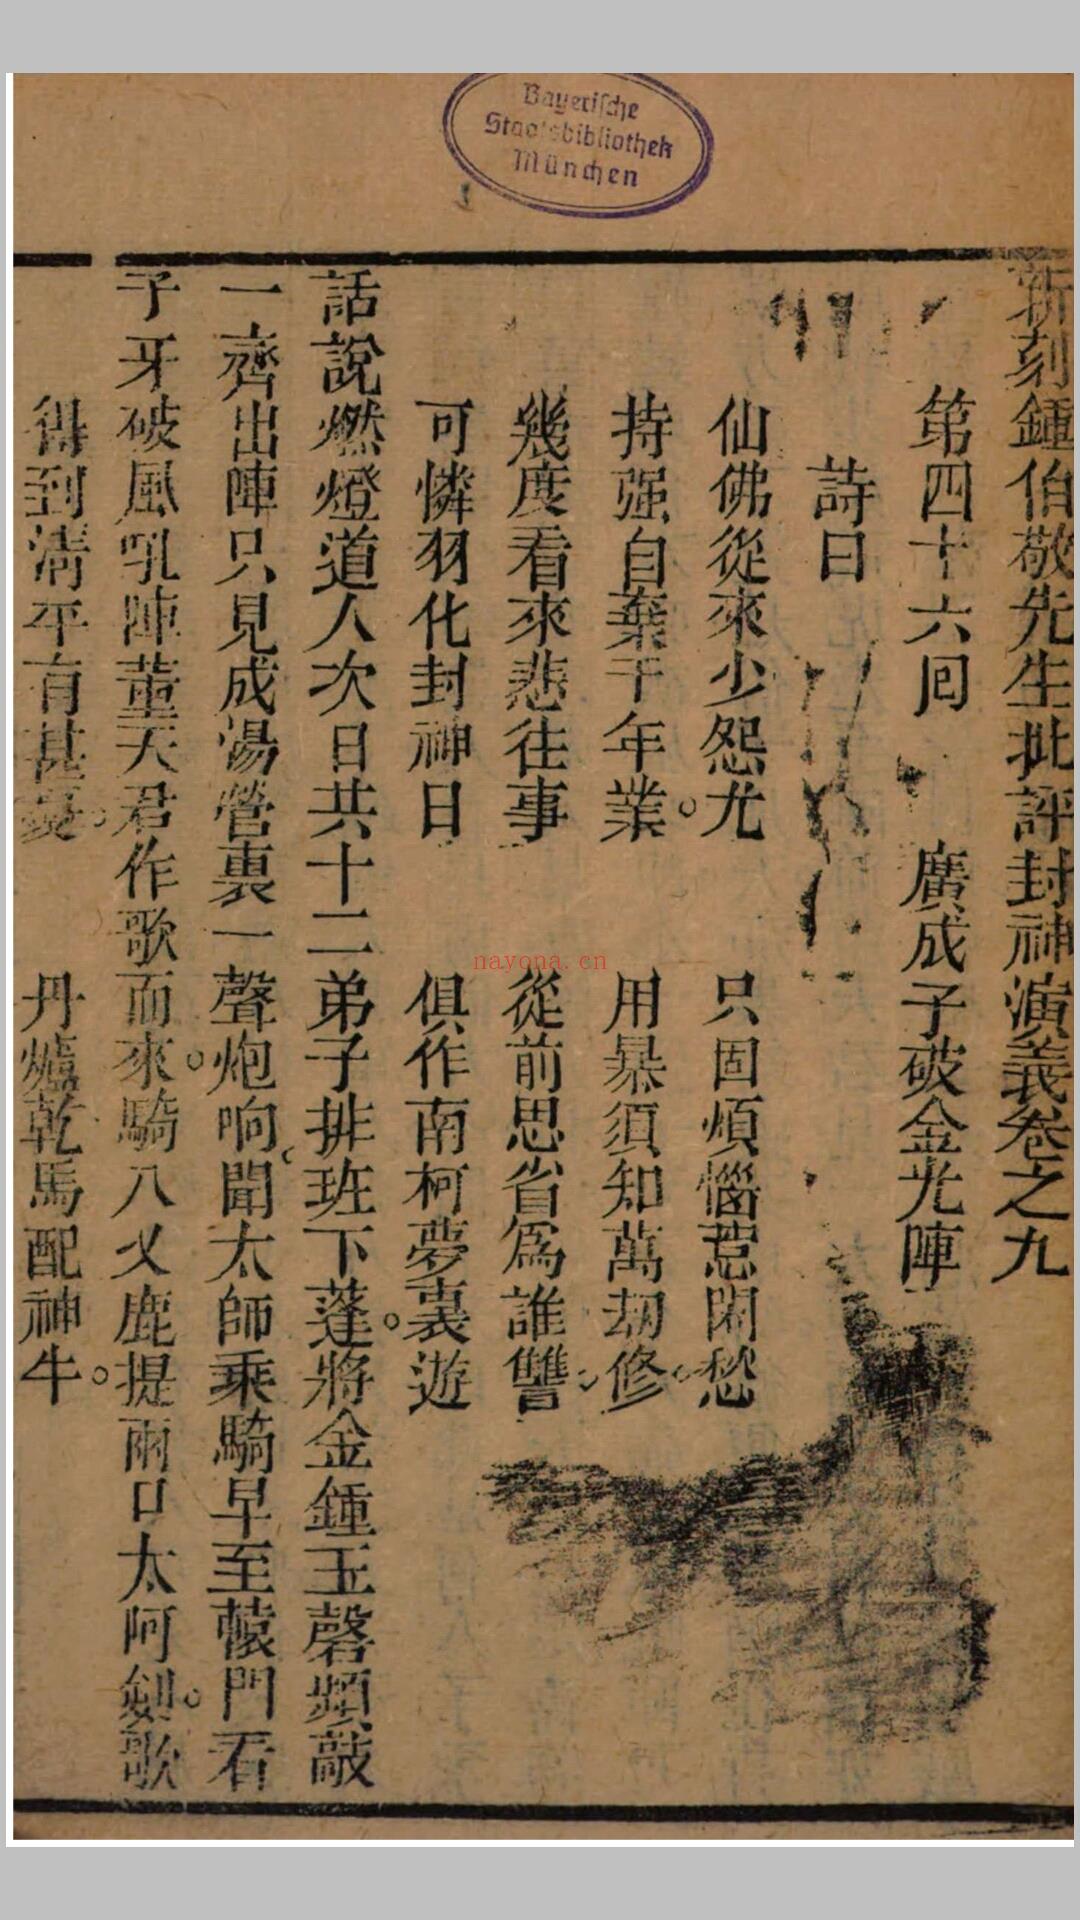 Bayerische
Staatsbibliothek
München
新刻鍾伯敬先生批評封神演義卷之九
第四十六囘 廣成子破金光陣
詩曰
仙佛從來少怨尤 只因煩惱惹閑愁
持强自棄千年業 用暴須知萬劫修
幾度看來悲往事 從前思省爲誰讐
可憐羽化封神日 俱作南柯夢裏遊
話說燃燈道人次日共十二弟子排班下蓬將金鍾玉磬頻敲
一齊出陣只見成湯營裏一聲炮响聞太師乘騎早至轅門看
子牙破風吼陣董天君作歌而來騎八乂鹿提兩口太阿劍歌
得到清平有甚憂 丹爐乾馬配神牛
nayona.cn